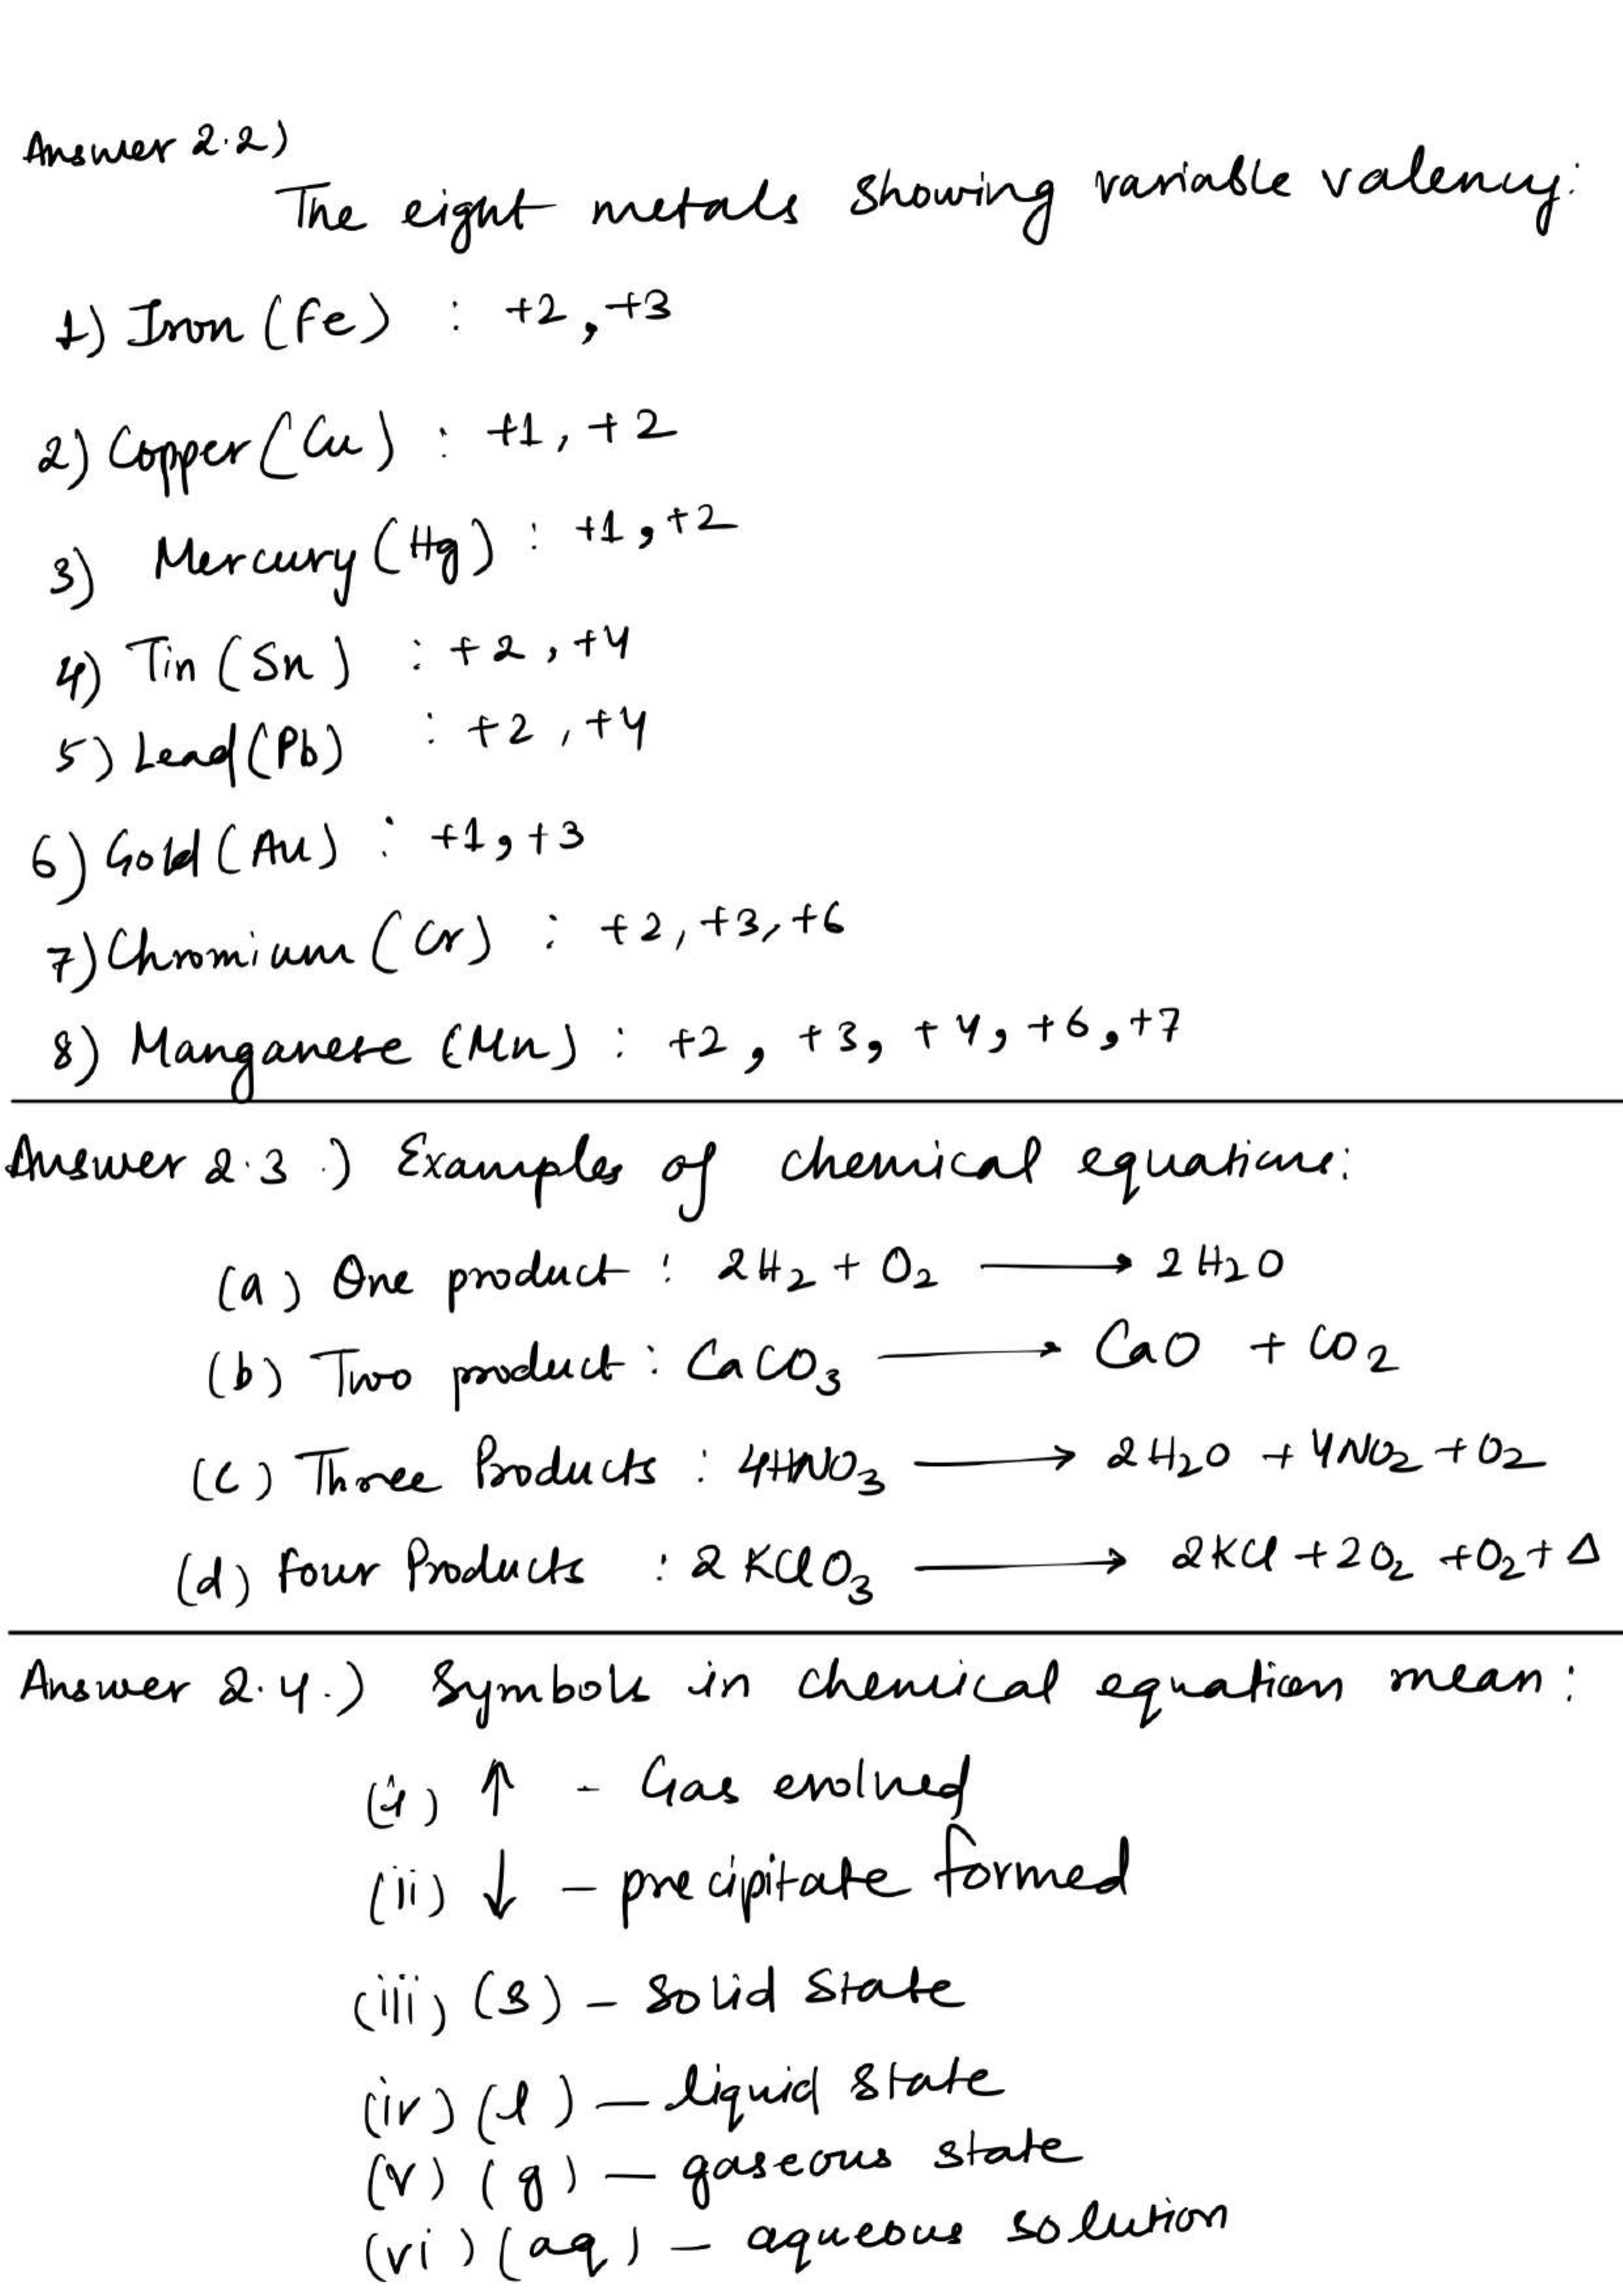 Answer 2.2)
The eight metals showing variable valency:
1) Iron (Fe) : +2, +3
2) Copper (Cu) : +1, +2
3) Mercury (Hg) : +1, +2
4) Tin (Sn) : +2, +4
5) Lead (Pb) : +2, +4
6) Gold (Au) : +1, +3
7) Chromium (Cr) : +2, +3, +6
8) Manganese (Mn) : +2, +3, +4, +6, +7
Answer 2.3.) Examples of chemical equations:
(a) One product : 2H₂ + O₂ ⟶ 2H₂O
(b) Two product : CaCO₃ ⟶ CaO + CO₂
(c) Three Products : 4HNO₃ ⟶ 2H₂O + 4NO₂ + O₂
(d) Four Products : 2KClO₃ ⟶ 2KCl + 2O₂ + O₂ + Δ
Answer 2.4.) Symbols in chemical equation mean :
(i) ↑ - Gas evolved
(ii) ↓ - precipitate formed
(iii) (s) - Solid State
(iv) (l) - liquid state
(v) (g) - gaseous state
(vi) (aq) - aqueous solution